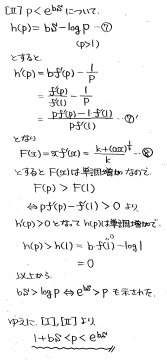 [Ⅱ] p < e^{bs'} について.
h(p) = bs' - log p …㋒
(p>1)
とすると
h'(p) = bf'(p) - 1/p
= f'(p)/f'(1) - 1/p
= (pf'(p) - 1·f'(1))/(pf'(1)) …㋒'
となり
とすると F(x)は単調増加なので
F(p) > F(1)
⇔ pf'(p) - f'(1) > 0 より
h'(p) > 0 となって h(p)は単調増加で
h(p) > h(1) = b·f(1) - log 1
= 0
以上から
bs' > log p ⇔ e^{bs'} > p も示された.
ゆえに. [Ⅰ], [Ⅱ] より
1 + bs' < p < e^{bs'}